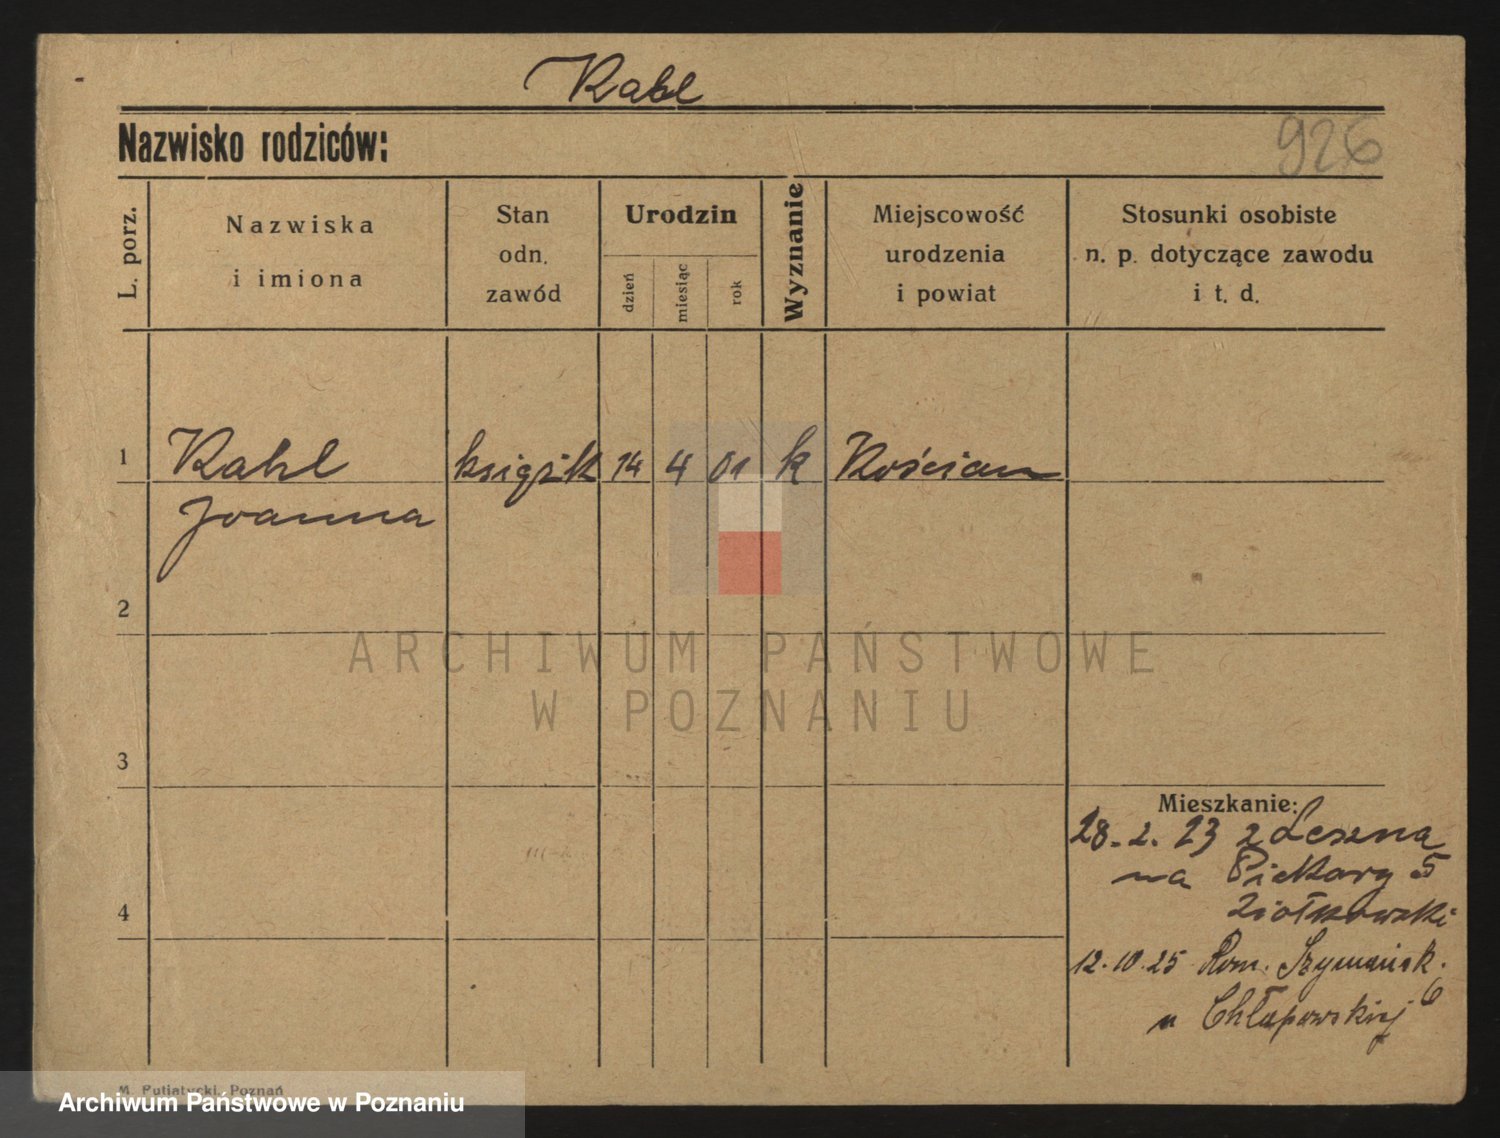 Kahl
Nazwisko rodziców:
926
L. porz.
Nazwiska
i imiona
Stan
odn.
zawód
Urodzin
dzień
miesiąc
rok
Wyznanie
Miejscowość
urodzenia
i powiat
Stosunki osobiste
n. p. dotyczące zawodu
i t. d.
1 Kahl książk 14 4 01 k Kościan
Joanna
2
3
4
Mieszkanie:
28.2.23 z Leszna
na Piekary 5
Ziółkowski
12.10.25 Rom. Szymańsk. 6
u Chłapowskiej
M. Putiatycki, Poznań
ARCHIWUM PAŃSTWOWE
W POZNANIU
Archiwum Państwowe w Poznaniu